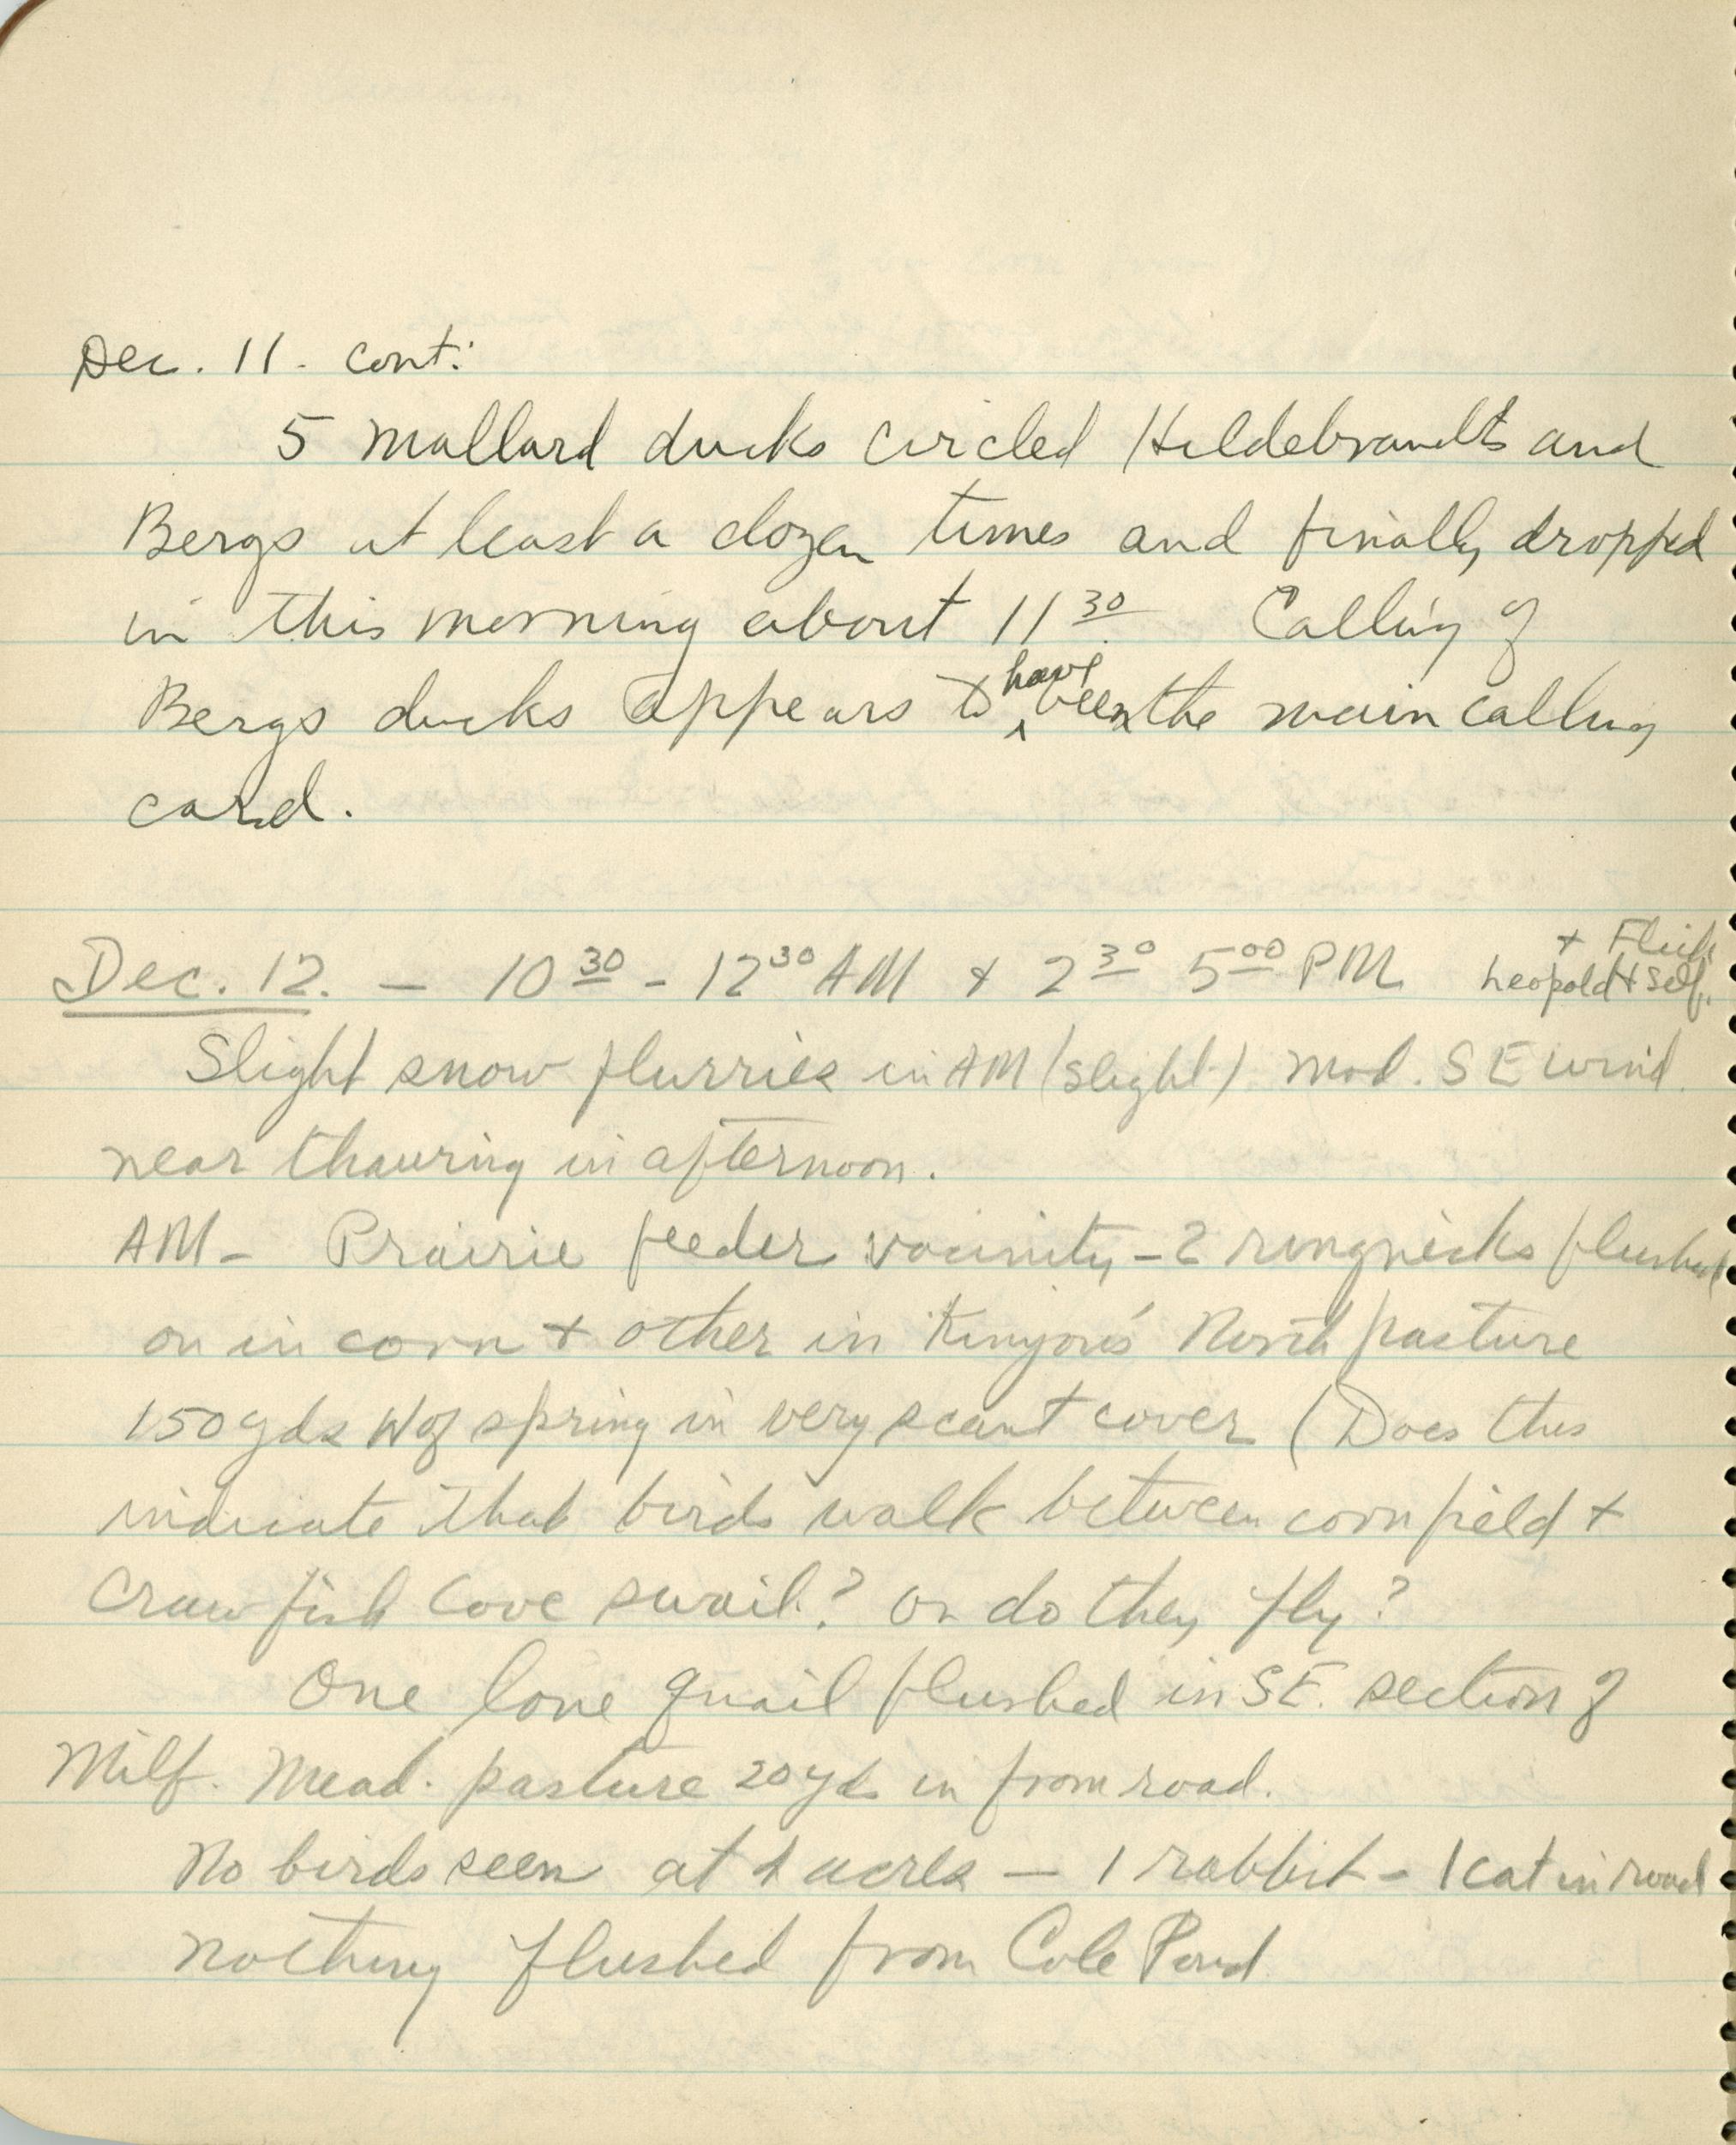 Dec. 11. cont:
5 Mallard ducks circled Hildebrandts and
Bergs at least a dozen times and finally dropped
in this morning about 11 30 Calling of
Bergs ducks appears to have been the main calling
card.
+ Flick
Dec. 12. - 10 30 - 12 30 AM + 2 30 5 00 PM Leopold + self.
Slight snow flurries in AM (slight) Mod. SE wind
near thawing in afternoon.
AM - Prairie feeder vacinity - 2 ringnecks flushed
on in corn + other in Kinyon's North pasture
150 yds W of spring in very scant cover (Does this
indicate that birds walk between cornfield +
Crawfish Cove swail? Or do they fly?
One lone quail flushed in SE. section of
Milf. Mead. pasture 20 yds in from road.
No birds seen at acres - 1 rabbit - 1 cat in road
Nothing flushed from Cole Pond